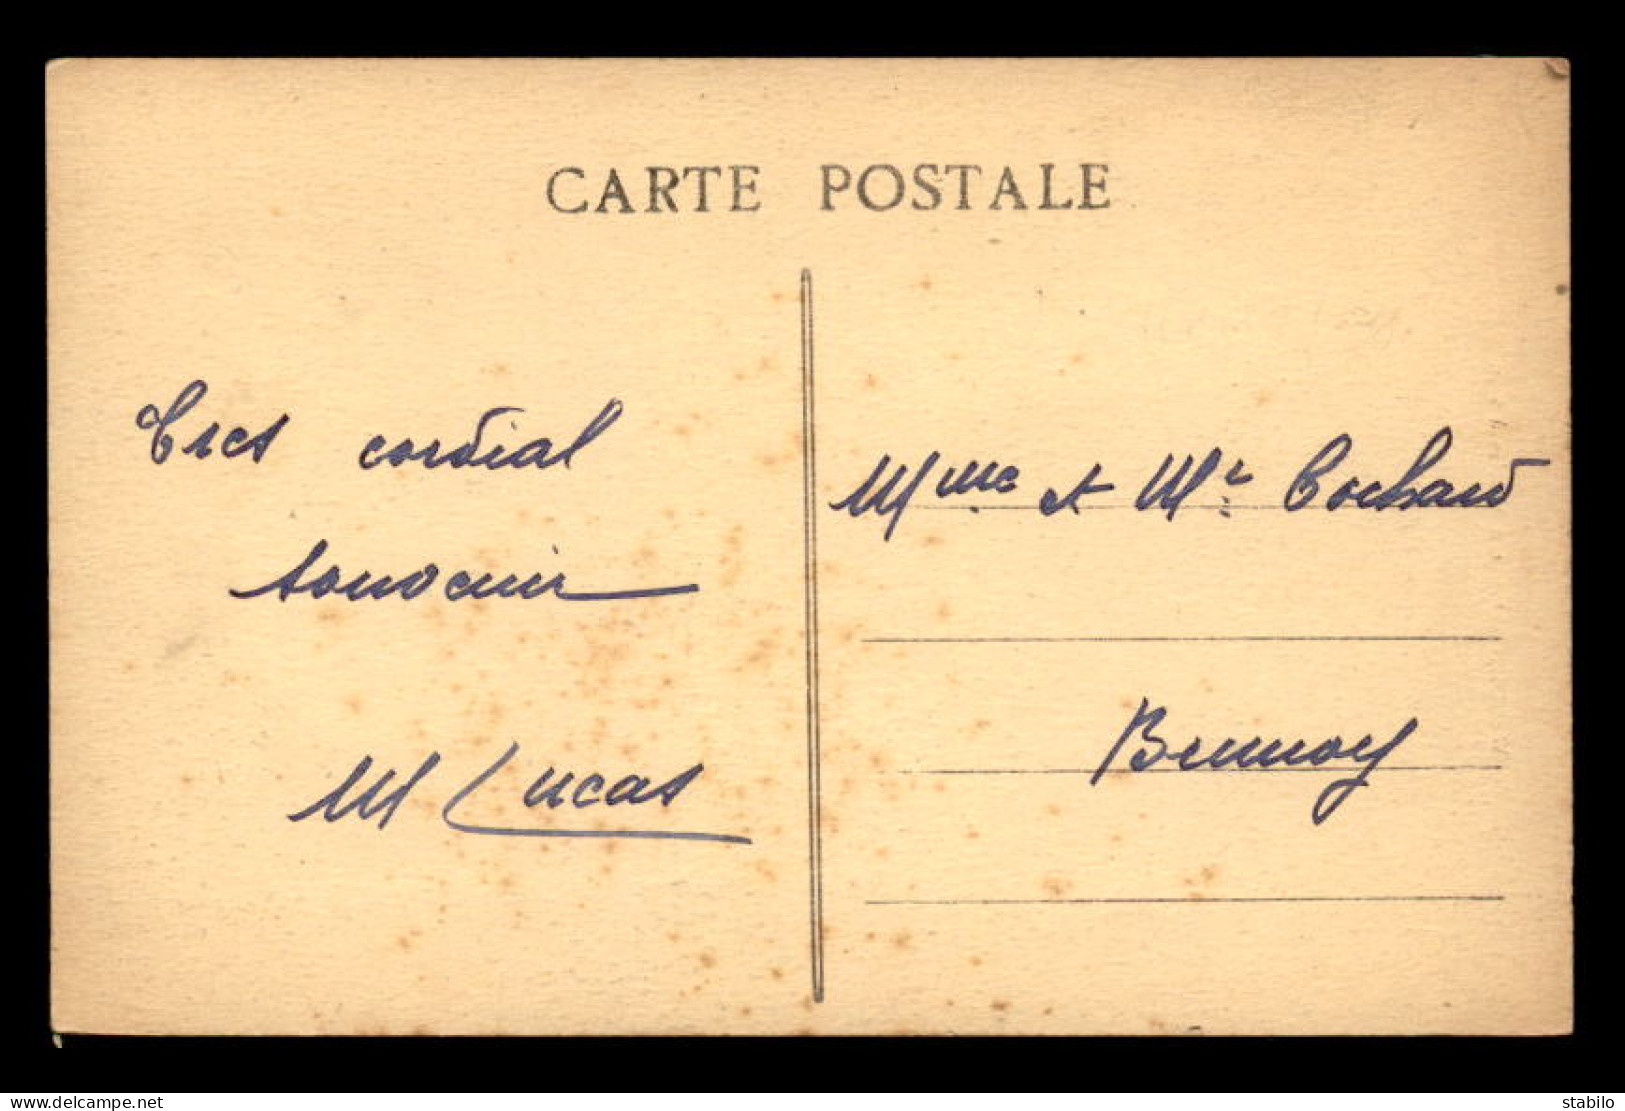 CARTE POSTALE
Tres cordial
souvenir
M Lucas
Mme et Mr Cochard
Brunoy
www.delcampe.net
stabilo